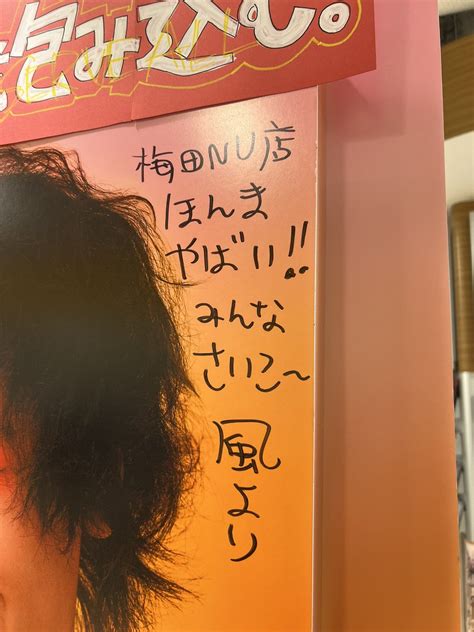 包み込む。
梅田NU店
ほんま
やばい!!
みんな
さいこ〜
風より